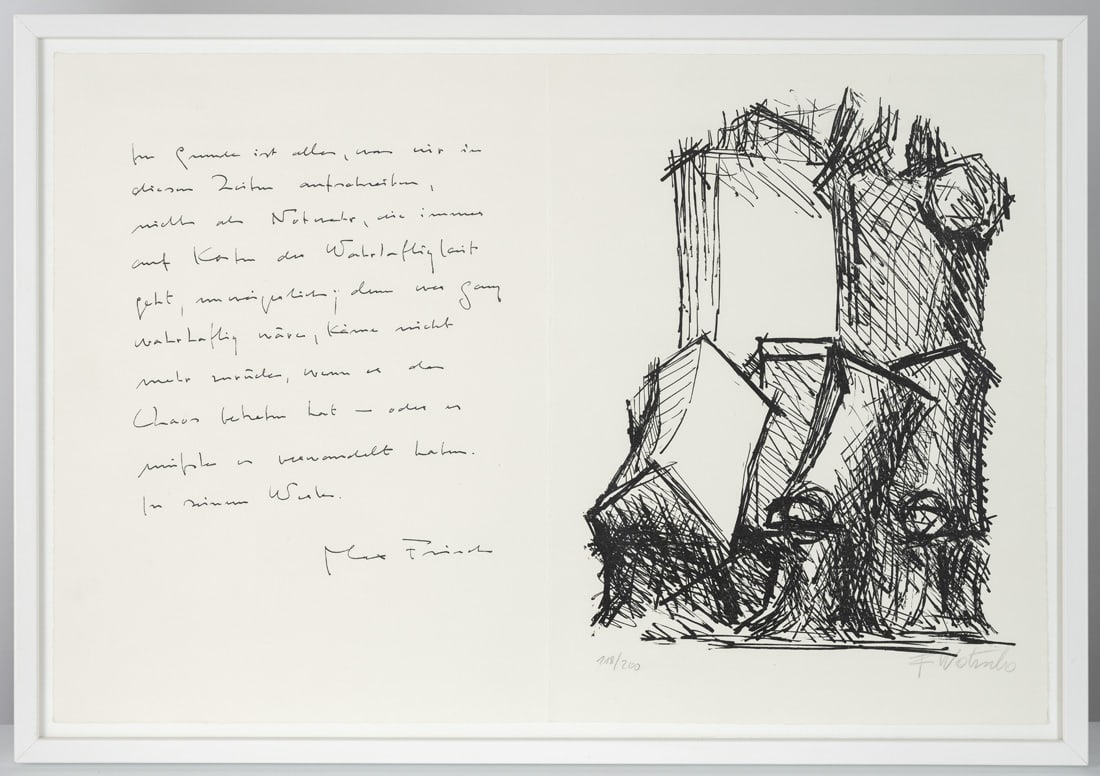 Im Grunde ist alles, was wir in
diesen Zeiten aufschreiben,
nichts als Notwehr, die immer
auf Kosten der Wahrhaftigkeit
geht, unweigerlich; denn wer ganz
wahrhaftig wäre, käme nicht
mehr zurück, wenn er das
Chaos betreten hat — oder er
müsste es verwandelt haben.
In seinem Werk.
Max Frisch
118/200
F Wotruba